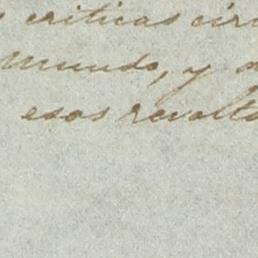 criticas circ
mundo, y
esos revolto